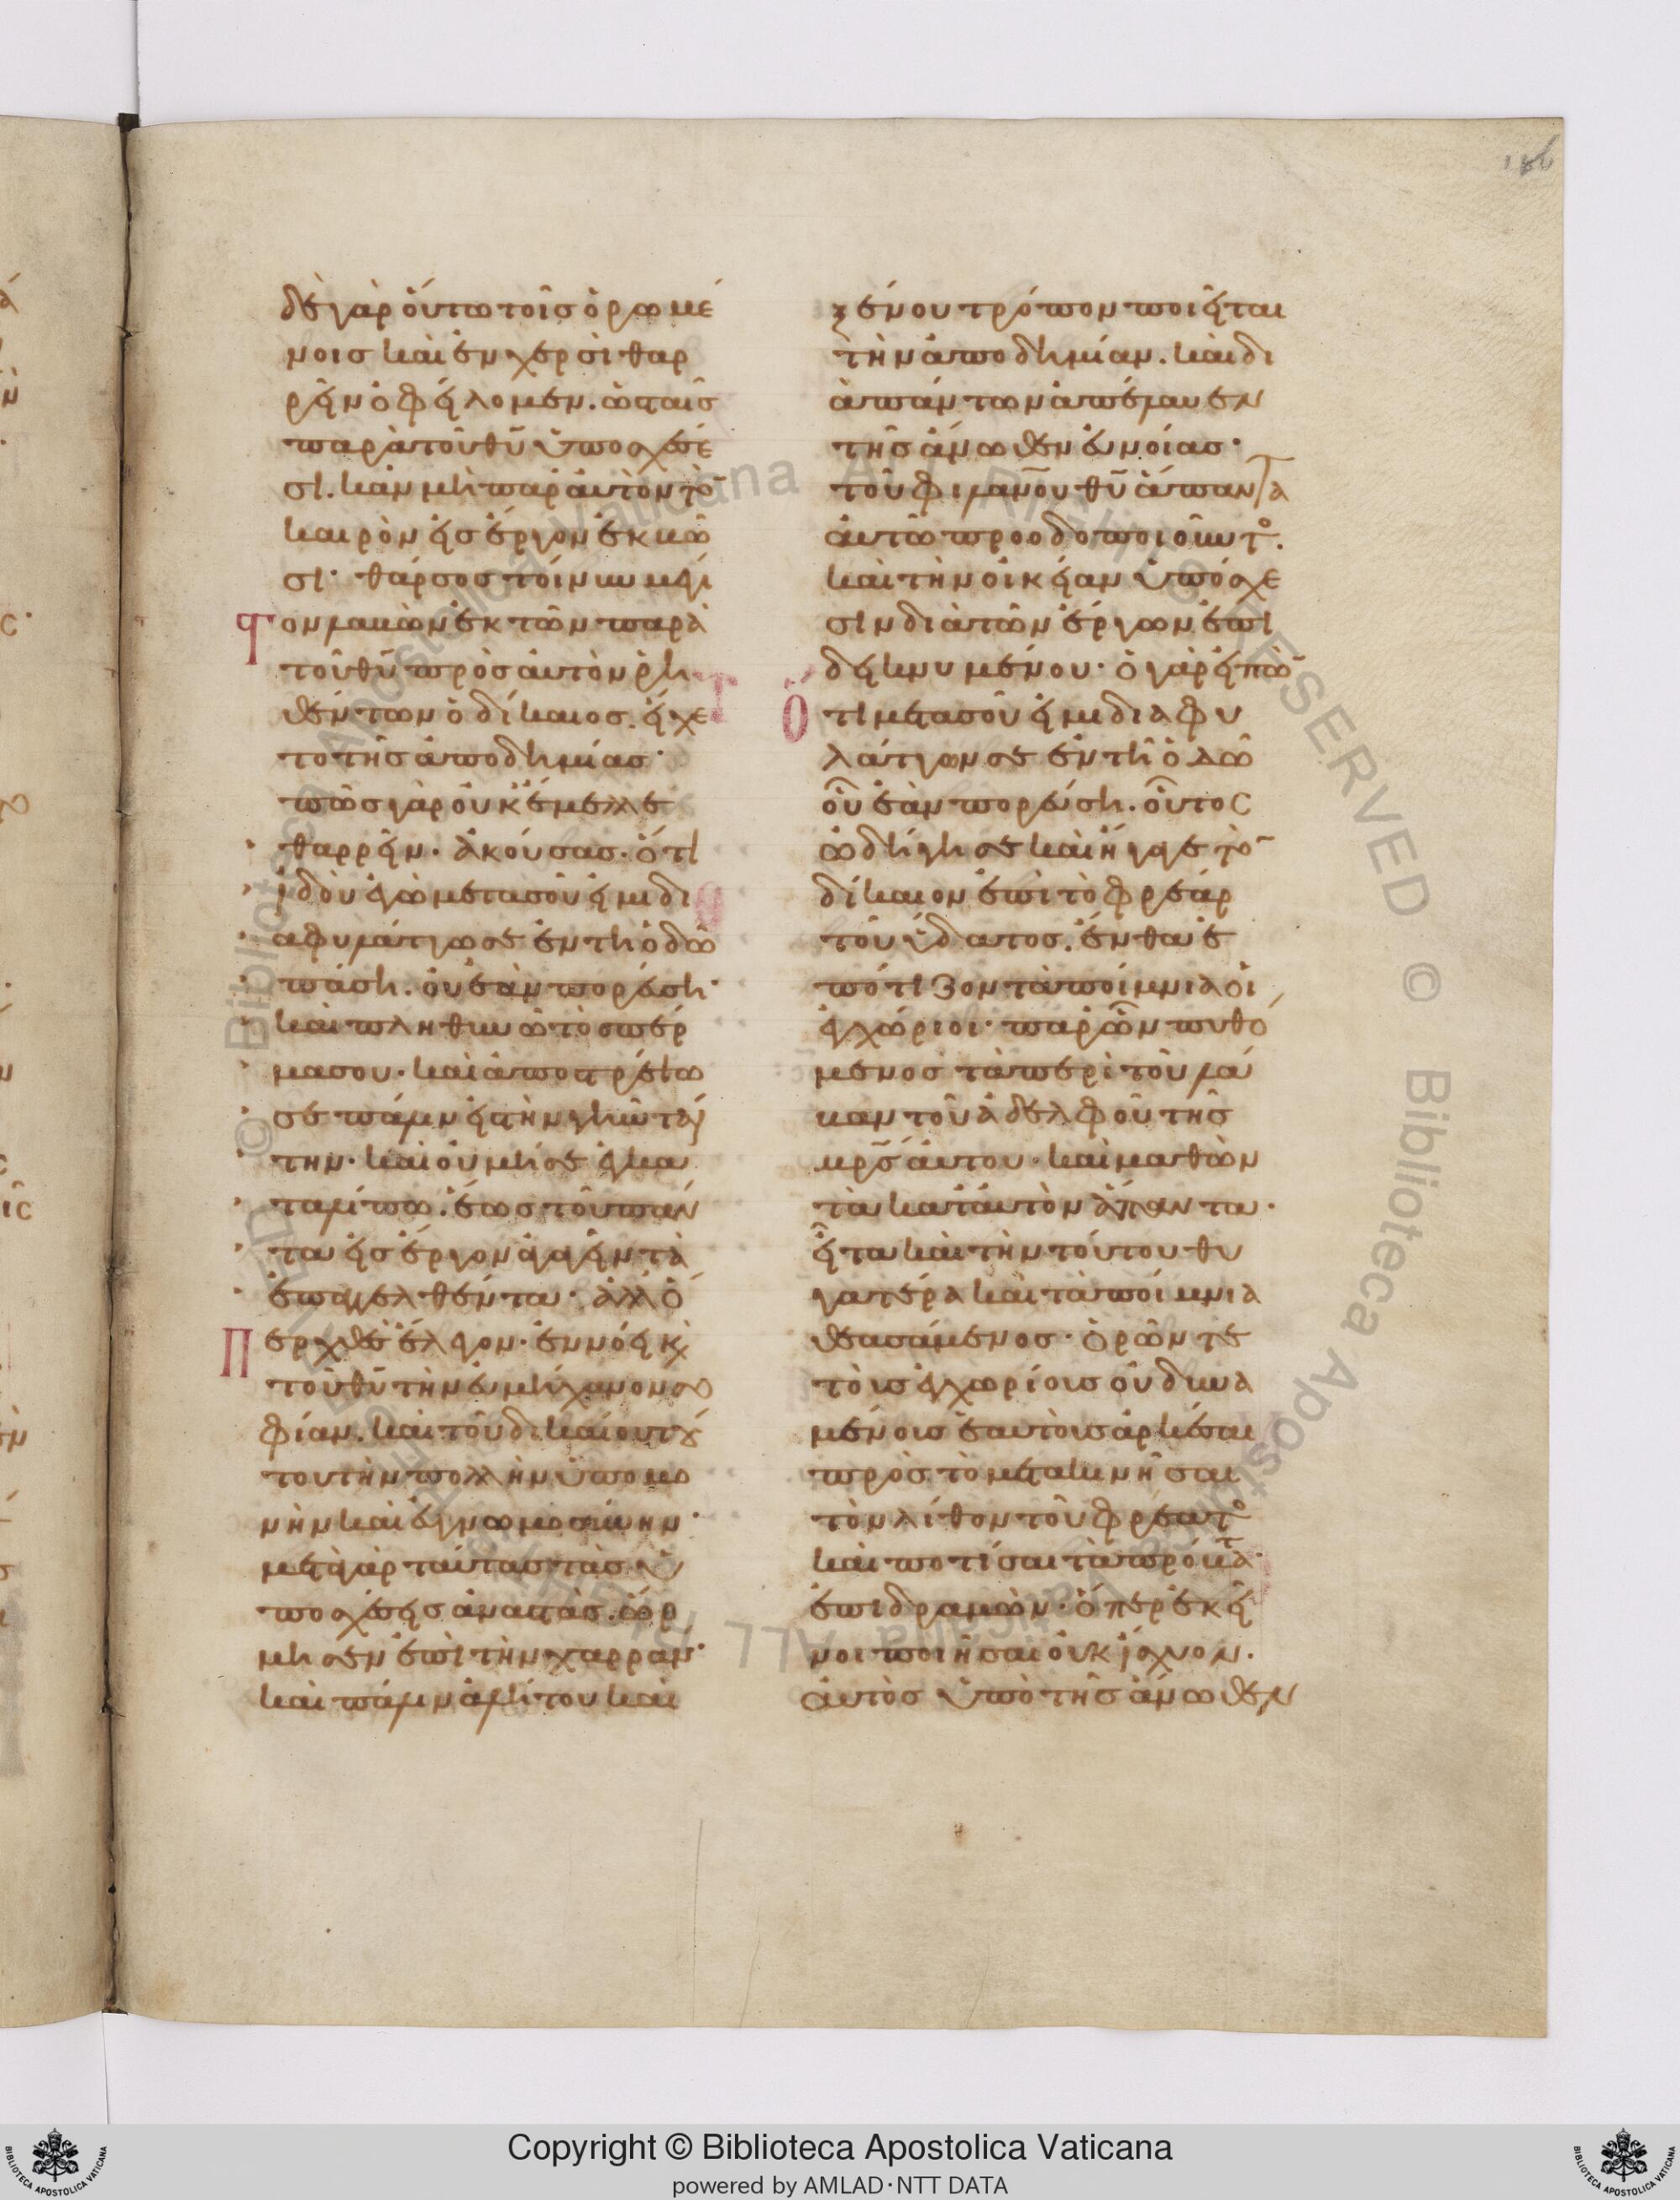 186
δὲ γὰρ οὕτω τοῖς ὁρωμέ
νοις καὶ ἐν χερσὶ θαρ
ρεῖν ὀφείλομεν. ὡς ταῖς
παρὰ τοῦ θῦ ὑποσχέσε
σι. κἂν μὴ παρ' αὐτὸν τὸ̄
καιρὸν εἰς ἔργον ἐκβῶ
σι· θάρσος τοίνυν μέγι
στον λαβὼν ἐκ τῶν παρὰ
τοῦ θῦ πρὸς αὐτὸν ῥη
θέντων ὁ δίκαιος. εἴχε
το τῆς ἀποδημίας·
πῶς γὰρ οὐκ ἔμελλε
θαρρεῖν. ἀκούσας. ὅτι
ἰδοὺ ἐγὼ μετὰ σοῦ εἰμι δι
αφυλάττων σε ἐν τῆ ὁδῶ
πάση. οὗ ἐὰν πορεύση·
καὶ πληθυνῶ τὸ σπέρ
μα σου. καὶ ἀποστρέψω
σε πάλιν εἰς τὴν γῆν ταύ
την. καὶ οὐ μή σε ἐγκα
ταλίπω. ἕως τοῦ πάν
τα εἰς ἔργον ἀχθῆναι τὰ
ἐπαγγελθέντα. ἀλλ' ὅ
περ χθὲς ἔλεγον. ἐννόει κ(αὶ)
τοῦ θῦ τὴν εὐμήχανον σο
φίαν. καὶ τοῦ δικαίου τού
του τὴν πολλὴν ὑπομο
νὴν καὶ εὐγνωμοσύνην·
μετὰ γὰρ ταύτας τὰς ὑ
ποσχέσεις ἀναστὰς. ὥρ
μησεν ἐπὶ τὴν χαρράν·
καὶ πάλιν ἀλήτου καὶ
ξένου τρόπον ποιεῖται
τὴν ἀποδημίαν. καὶ δι
ὰ πάντων ἀπέλαυεν
τῆς ἄνωθεν εὐνοίας·
τοῦ φιλανου θῦ ἅπαντα
αὐτῶ προοδοποιοῦντο.
καὶ τὴν οἰκείαν ὑπόσχε
σιν διὰ τῶν ἔργων ἐπι
δεικνυμένου· ὁ γὰρ εἰπὼ̄
ὅτι μετὰ σοῦ εἰμι διαφυ
λάττων σε ἐν τῆ ὁδῶ
οὗ ἐὰν πορεύση. οὗτος
ὡδήγησε καὶ ἤγαγε τὸ̄
δίκαιον ἐπὶ τὸ φρέαρ
τοῦ ὕδατος. ἔνθα ἐ
πότιζον τὰ ποίμνια οἱ
ἐγχώριοι· παρ' ὧν πυθό
μενος τὰ περὶ τοῦ λά
βαν τοῦ ἀδελφοῦ τῆς
μρς αὐτου. καὶ μαθὼν
τὰ κατ' αὐτὸν ἅπαντα.
εἶτα καὶ τὴν τούτου θυ
γατέρα καὶ τὰ ποίμνια
θεασάμενος· ὁρῶν τε
τοὺς ἐγχωρίοις οὐ δυνα
μένοις ἑαυτοὺς ἀρκέσαι
πρὸς τὸ μετακινῆσαι
τὸν λίθον τοῦ φρέατο
καὶ ποτίσαι τὰ πρόβατα
ἐπιδραμὼν. ὅπερ ἐκεῖ
νοι ποιῆσαι οὐκ ἴσχυον.
αὐτὸς ὑπὸ τῆς ἄνωθεν
Copyright © Biblioteca Apostolica Vaticana
powered by AMLAD·NTT DATA